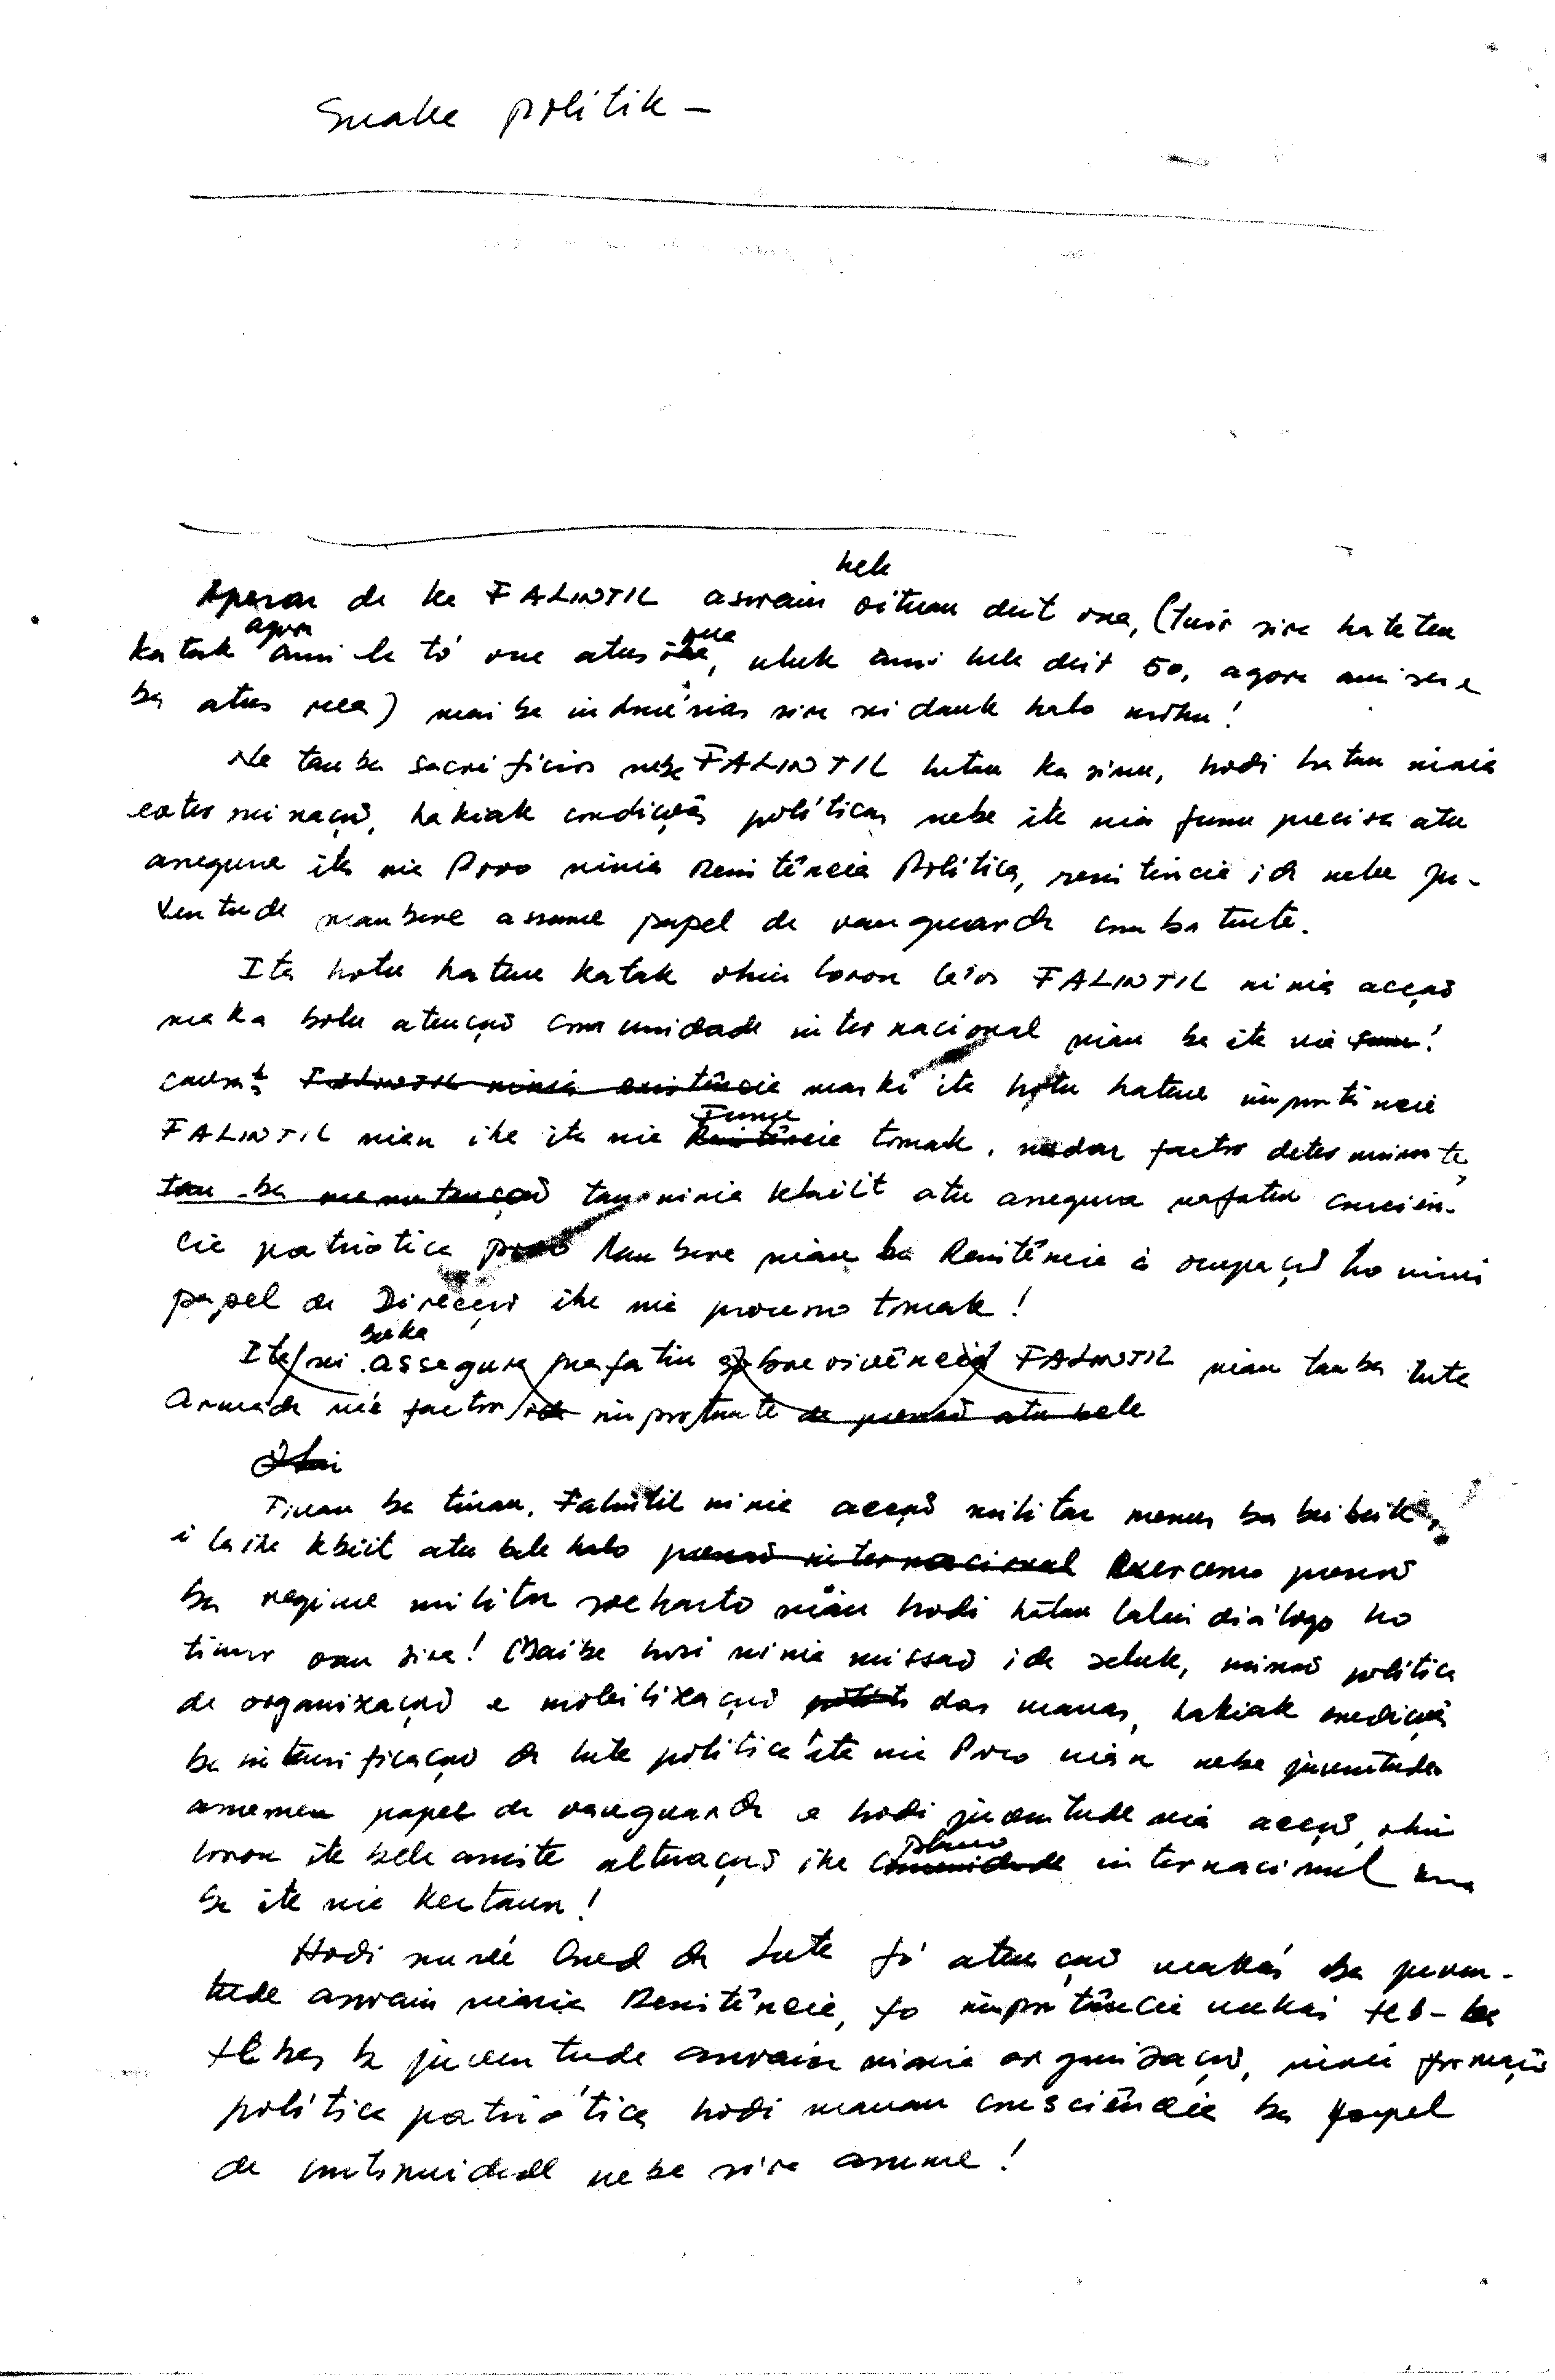 Suake politik –
hela
Apesar de ke FALINTIL aswain oituan deit ona, (tuir sira hateten
agora
katak ami la to' one atus rua, uluk ami hela deit 50, agora ami sae
ba atus rua) maibe indonésias sira sei dauk halo rohu!
Ne tan ba sacrifícios nebe FALINTIL hetan ka simu, hodi hatan ninia
exterminação, hakiak condições políticas nebe ita nia funu precisa atu
assegura ita nia Povo ninia Resistência Política, resistência ida nebe ju-
ventude maubere assume papel de vanguarda combatente.
Ita hotu hatene katak ohin loron la'os FALINTIL ninia acção
maka bolu atenção comunidade internacional nian ba ita nia funu!
causa! FALINTIL ninia existência maski ita hotu hatene importância
Funu
FALINTIL nian iha ita nia Resistência tomak, nudar factor determinante,
tan ba manutenção tan ninia kbiit atu assegura nafatin consciên-
cia patriótica povo Maubere nian ba Resistência à ocupação ho ninia
papel de Direcção iha nia processo tomak!
buka
Ita sei assegura nafatin sobrevivência FALINTIL nian tan ba luta
Armada né factor ida importante de pressão atu bele
Ohin
Tinan ba tinan, Falintil ninia acção militar menus ba beibeik,
i la iha kbiit atu bele halo pressão internacional exercemo pressão
ba regime militar soeharto nian hodi hatan lalais diálogo ho
timor oan sira! Maibe husi ninia missão ida seluk, missão política
de organização e mobilização das massas, hakiak condições
ba intensificação da luta política ita nia Povo nian nebe juventude
assumem papel de vanguarda e hodi juventude nia acção, ohin
plano
loron ita bele assiste alteração iha comunidade internacional
ba ita nia kestaun!
Hodi nuné Cmd da Luta fó atenção makás ba juven-
tude aswain ninia Resistência, fo importância makás tebe-
tebes ba juventude aswain ninia organização, ninia formação
política patriótica hodi manan consciência ba papel
de continuidade nebe sira assume!